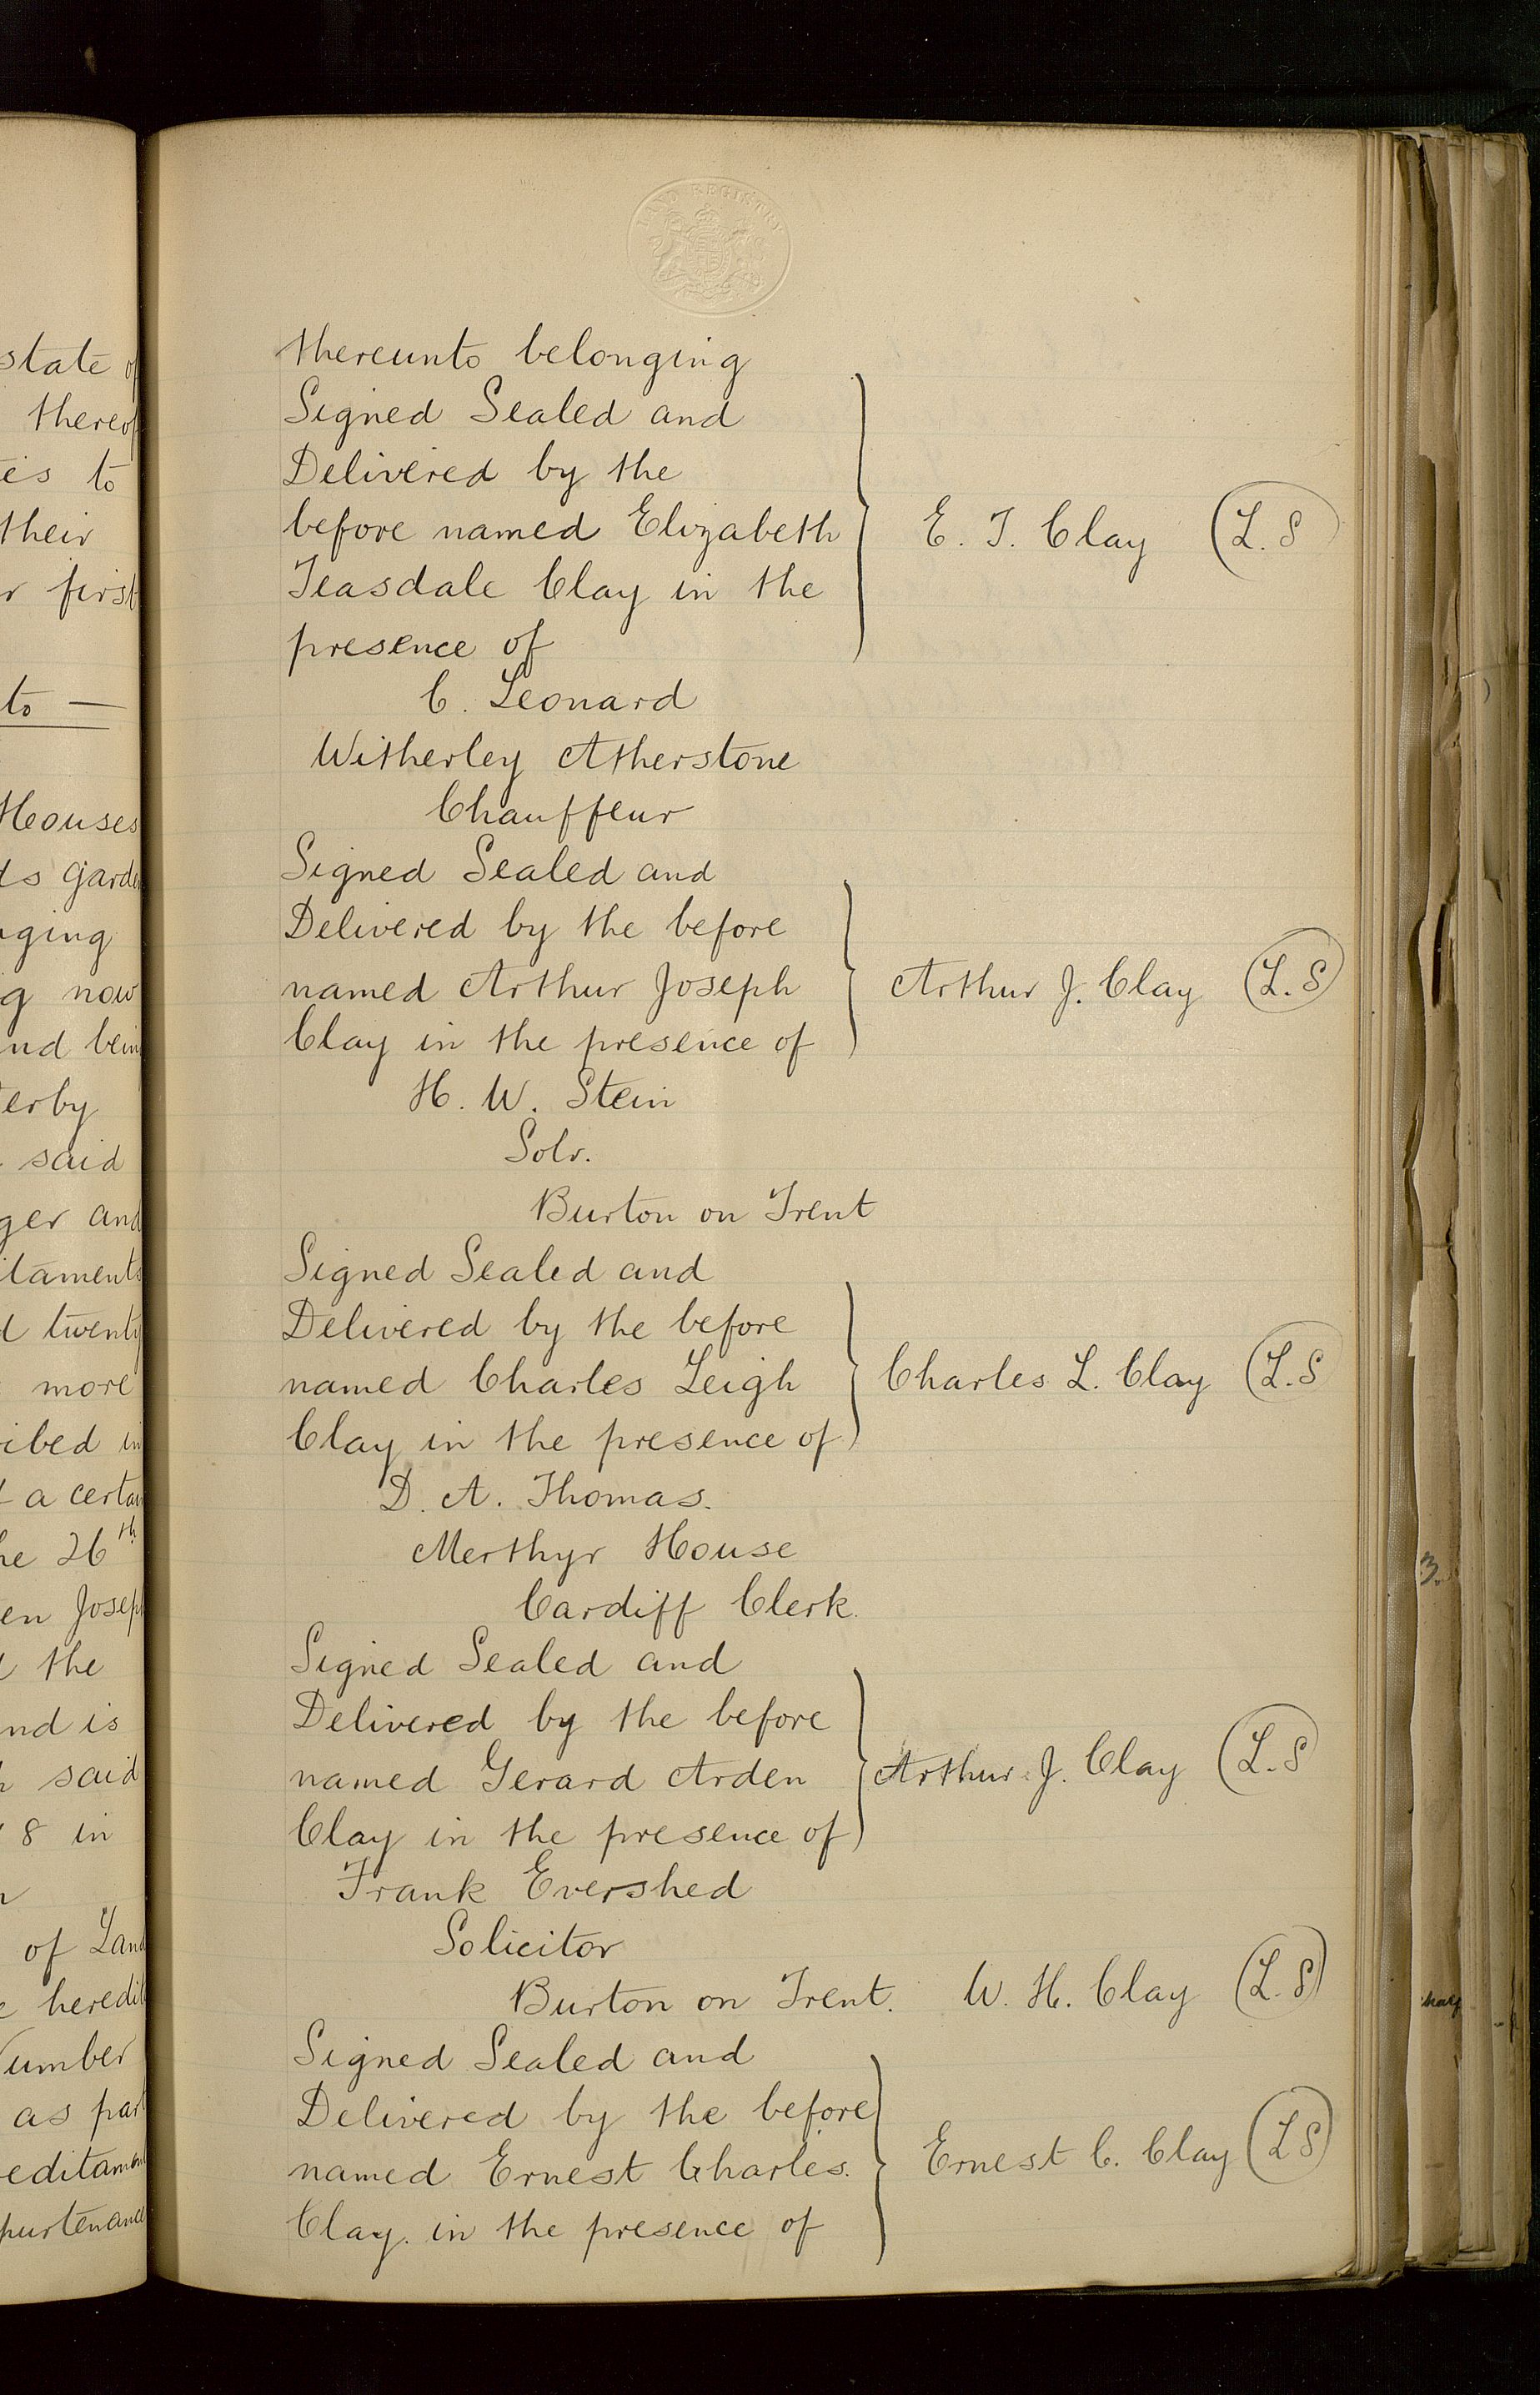 LAND REGISTRY
thereunto belonging
Signed Sealed and
Delivered by the
before named Elizabeth
Teasdale Clay in the
presence of
E. T. Clay (L.S
C. Leonard
Witherley Atherstone
Chauffeur
Signed Sealed and
Delivered by the before
named Arthur Joseph
Clay in the presence of
Arthur J. Clay (L.S)
H. W. Stein
Solr.
Burton on Trent
Signed Sealed and
Delivered by the before
named Charles Leigh
Clay in the presence of
Charles L. Clay (L.S
D. A. Thomas.
Merthyr House
Cardiff Clerk.
Signed Sealed and
Delivered by the before
named Gerard Arden
Clay in the presence of
Arthur J. Clay (L.S
Frank Evershed
Solicitor
Burton on Trent.
W. H. Clay (L.S)
Signed Sealed and
Delivered by the before
named Ernest Charles.
Clay. in the presence of
Ernest C. Clay (L S)
state of
thereof
es to
their
r first
to —
Houses
ds garden
nging
g now
and being
erby
said
ger and
itaments
d twenty
more
ribed in
t a certain
he 26th
en Joseph
d the
nd is
h said
8 in
of Land
e heredit
umber
as part
editament
purtenance
3.
half